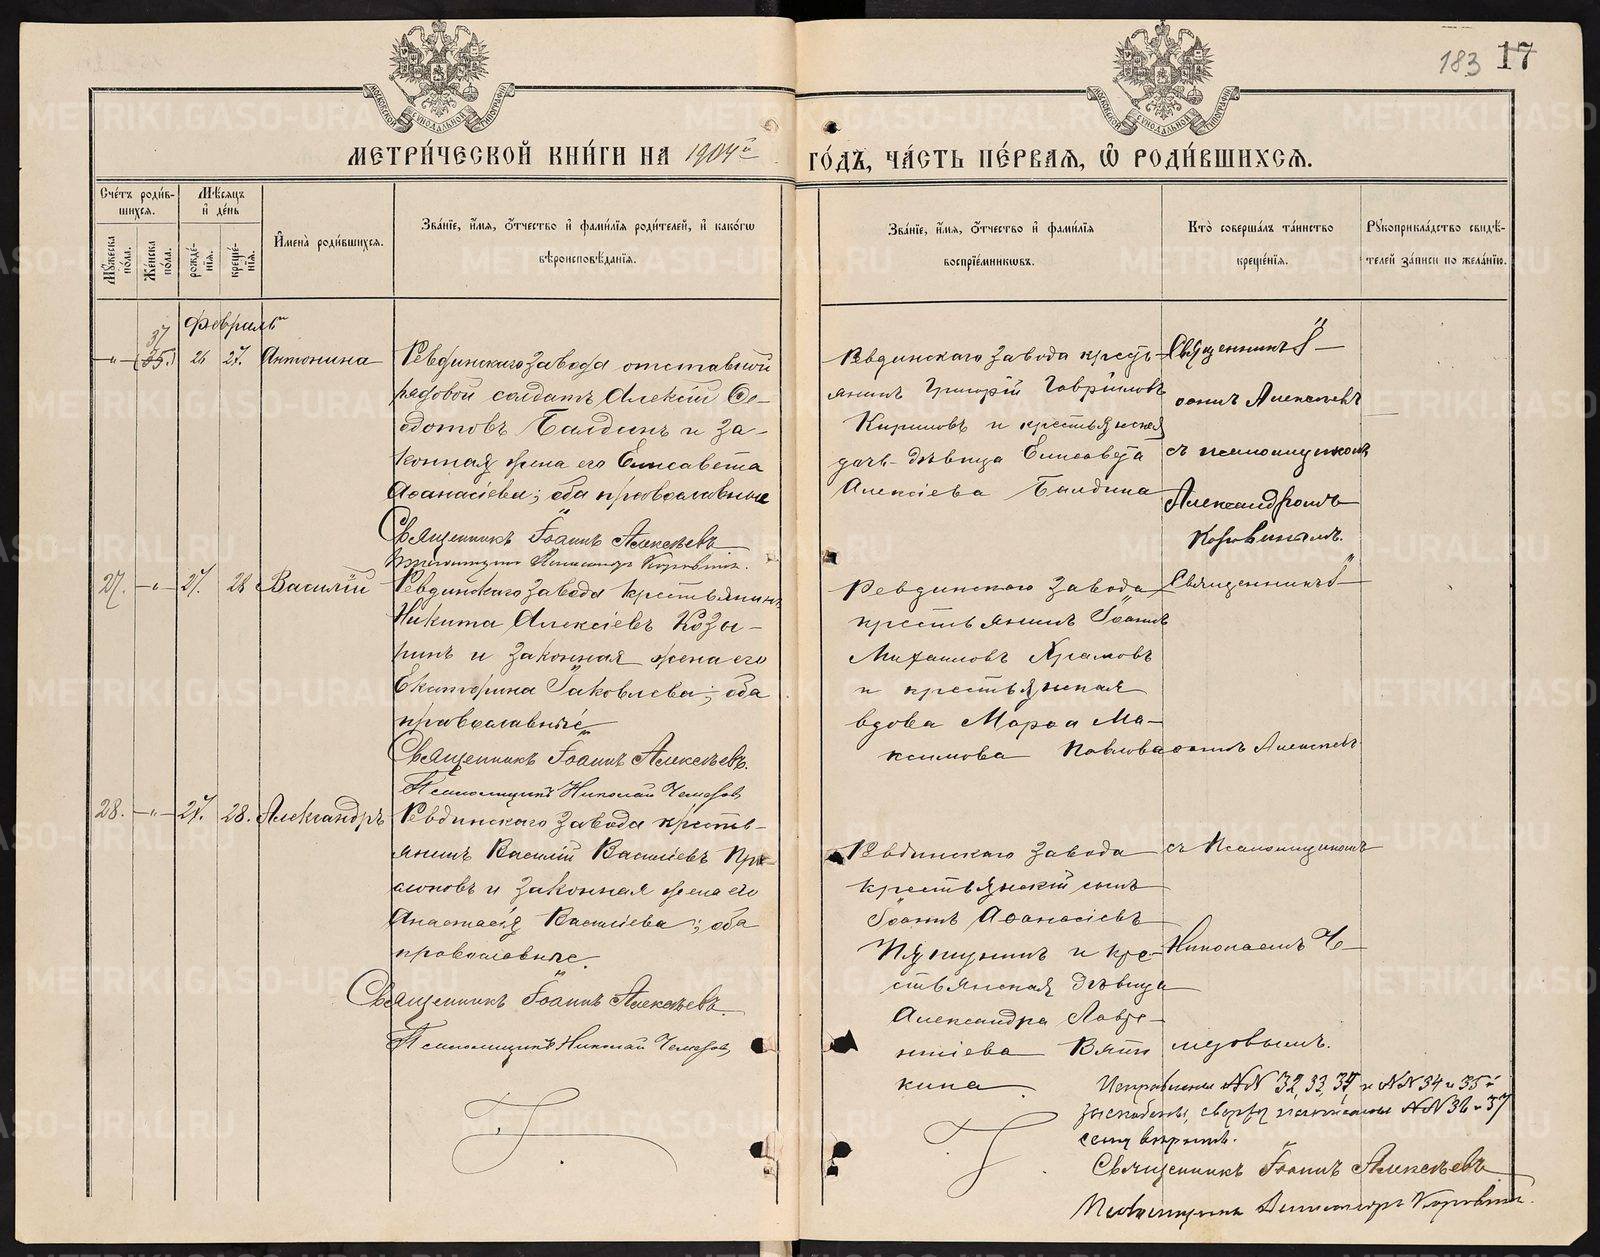 183 17
МЕТРИ́ЧЕСКОЙ КНИ́ГИ НА 1904й ГО́ДЪ, ЧА́СТЬ ПЕ́РВАЯ, Ѽ РОДИ́ВШИХСѦ.
Сче́тъ роди́вшихся.
Мꙋжеска по́ла.
Же́нска по́ла.
Мѣ́сяцъ и де́нь
рожде́нїя.
креще́нїя.
Имена̀ роди́вшихся.
Зва́нїе, и́мя, ѻ́тчество и фами́лїя роди́телей, и како́гѡ вѣроисповѣ́данїя.
Зва́нїе, и́мя, ѻ́тчество и фами́лїя воспрїе́мникѡвъ.
Кто̀ соверша́лъ та́инство креще́нїя.
Рꙋкоприкла́дство свидѣ́телей за́писи по жела́нїю.
Февраль
37
— „ — (35.) 26 27. Антонина
Ревдинскаго завода отставной
рядовой солдатъ Алексій Ѳе-
одотовъ Балдинъ и за-
конная жена его Елисавета
Аѳанасіева; оба православные
Священникъ Іоаннъ Алексѣевъ
Псаломщикъ Александръ Коровинъ.
Ревдинскаго завода кресть-
янинъ Григорій Гавріиловъ
Кириловъ и крестьянская
дочь-дѣвица Елисавета
Алексіева Балдина
Священникъ І—
оаннъ Алексѣевъ
съ псаломщикомъ
Александромъ
Коровинымъ.
27. — „ — 27. 28 Василій
Ревдинскаго завода крестьянинъ
Никита Алексіевъ Козы-
ринъ и законная жена его
Екатерина Іаковлева; оба
православные
Священникъ Іоаннъ Алексѣевъ.
Псаломщикъ Николай
Ревдинскаго завода
крестьянинъ Іоаннъ
Михаиловъ Храмовъ
и крестьянская
вдова Марѳа Ма-
ксимова Павлова
Священникъ І—
оаннъ Алексѣевъ
28. — „ — 27. 28. Александръ
Ревдинскаго завода кресть-
янинъ Василій Василіевъ
и законная жена его
Анастасія Василіева; оба
православные.
Священникъ Іоаннъ Алексѣевъ.
Псаломщикъ Николай
Ревдинскаго завода
крестьянскій сынъ
Іоаннъ Аѳанасіевъ
и кре-
стьянская дѣвица
Александра Лавре-
нтіева Вят-
кина
съ Псаломщикомъ
Николаемъ Че-
Исправленные №№ 32, 33, 37, и №№ 34 и 35й
сверху написанные №№ 36 и 37
сему вѣрить.
Священникъ Іоаннъ Алексѣевъ
Псаломщикъ Александръ Коровинъ.